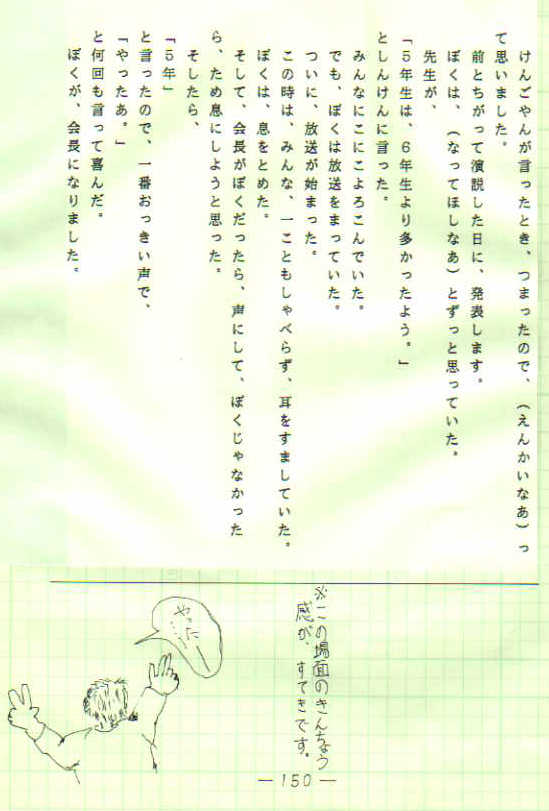 けんごやんが言ったとき、つまったので、（えんかいなあ）っ
て思いました。
前とちがって演説した日に、発表します。
ぼくは、（なってほしなあ）とずっと思っていた。
先生が、
「５年生は、６年生より多かったよう。」
としんけんに言った。
みんなにこにこよろこんでいた。
でも、ぼくは放送をまっていた。
ついに、放送が始まった。
この時は、みんな、一こともしゃべらず、耳をすましていた。
ぼくは、息をとめた。
そして、会長がぼくだったら、声にして、ぼくじゃなかった
ら、ため息にしようと思った。
そしたら、
「５年」
と言ったので、一番おっきい声で、
「やったあ。」
と何回も言って喜んだ。
ぼくが、会長になりました。
※この場面のきんちょう
感が、すてきです。
やった
— 150 —